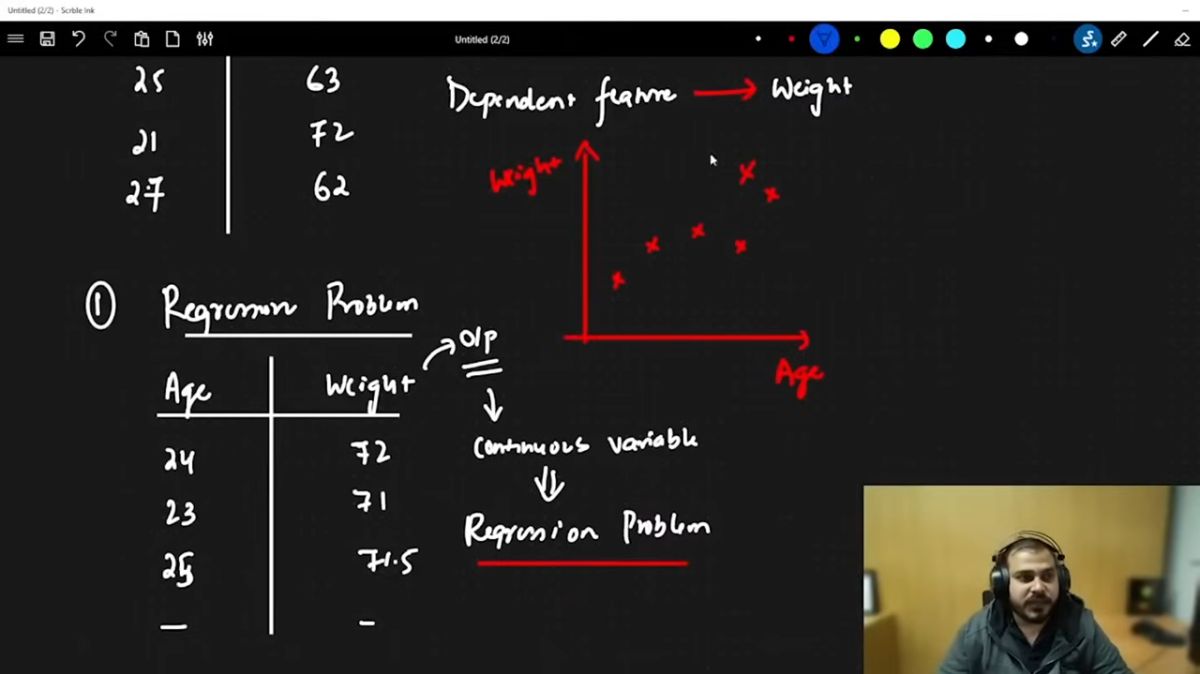 Untitled (2/2) - Scrble Ink
Untitled (2/2)
25 63
21 72
27 62
Dependent feature → Weight
Weight
Age
① Regression Problem
Age Weight → O/p
24 72
23 71
25 71.5
— —
↓
Continuous variable
⇓
Regression Problem